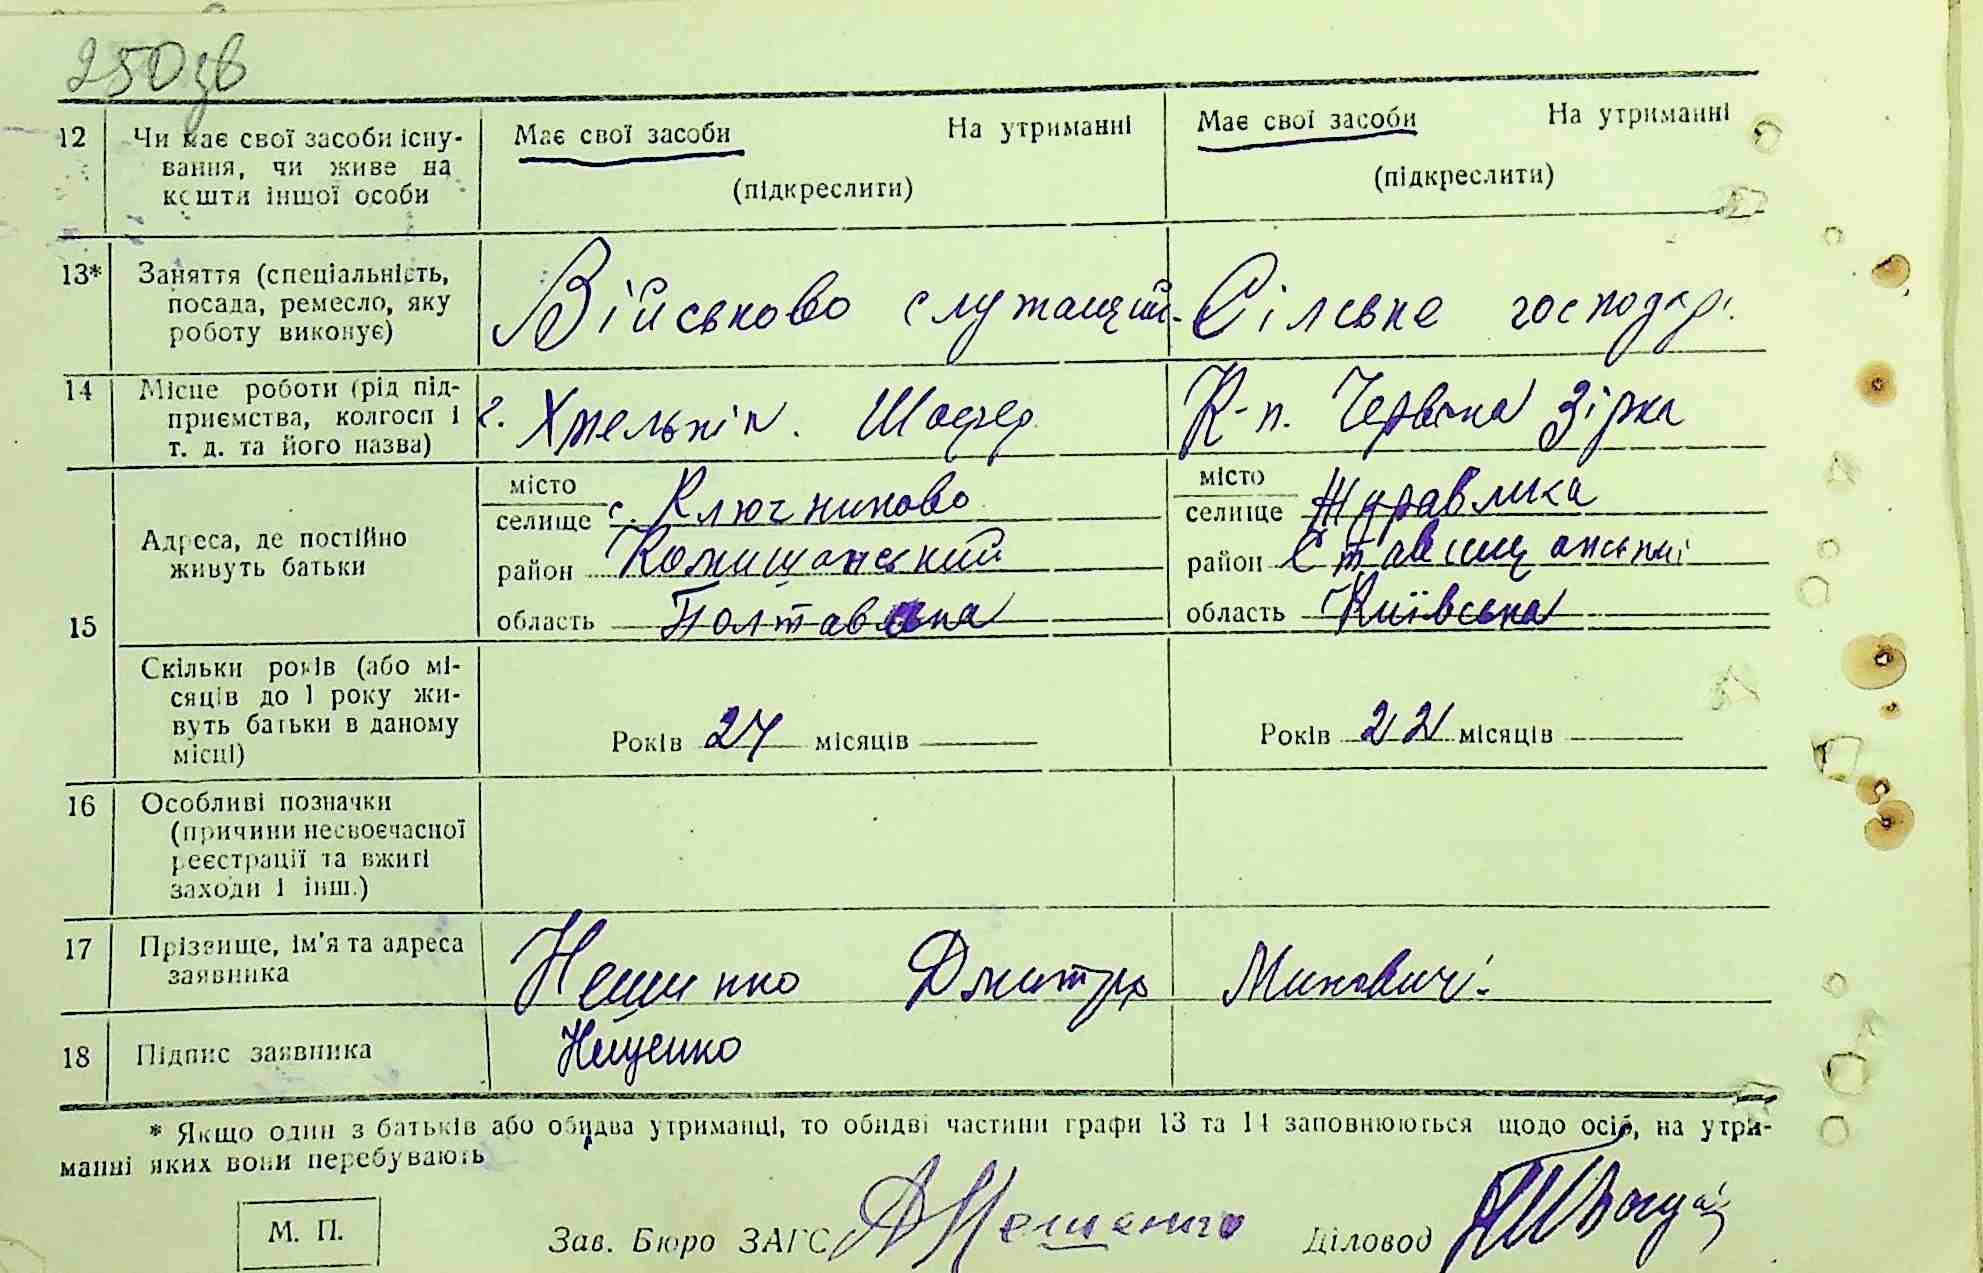 250зв
12 Чи має свої засоби існу- Має свої засоби На утриманні Має свої засоби На утриманні
вання, чи живе на (підкреслити) (підкреслити)
кошти іншої особи
13* Заняття (спеціальність, Військово служащий Сільське господар.
посада, ремесло, яку
роботу виконує)
14 Місце роботи (рід під- Шофер К-п. Червона Зірка
приємства, колгосп і
т. д. та його назва)
15 Адреса, де постійно
живуть батьки
місто місто
селище с. Ключниково селище Журавлика
район Комишанський район Ставищанський
область область Київська
Скільки років (або мі-
сяців до 1 року жи-
вуть батьки в даному Років 27 місяців Років 22 місяців
місці)
16 Особливі позначки
(причини несвоєчасної
реєстрації та вжиті
заходи і інш.)
17 Прізвище, ім'я та адреса Дмитро Минович
заявника
18 Підпис заявника Нещенко
* Якщо один з батьків або обидва утриманці, то обидві частини графи 13 та 14 заповнюються щодо осіб, на утри-
манні яких вони перебувають
М. П. Зав. Бюро ЗАГС Діловод